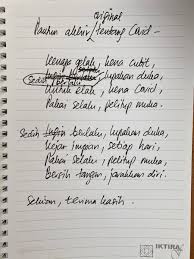 original
Pantun akhir / tentang Covid -
Kenapa gelak, kena cubit,
lupakan duka,
Untuk elak, kena Covid,
Pakai selalu, pelitup muka.
Sedih berlalu, lupakan duka,
Kejar impian, setiap hari,
Pakai selalu, pelitup muka,
Bersih tangan, jarakkan diri.
Sekian, terima kasih.
IKTIRA